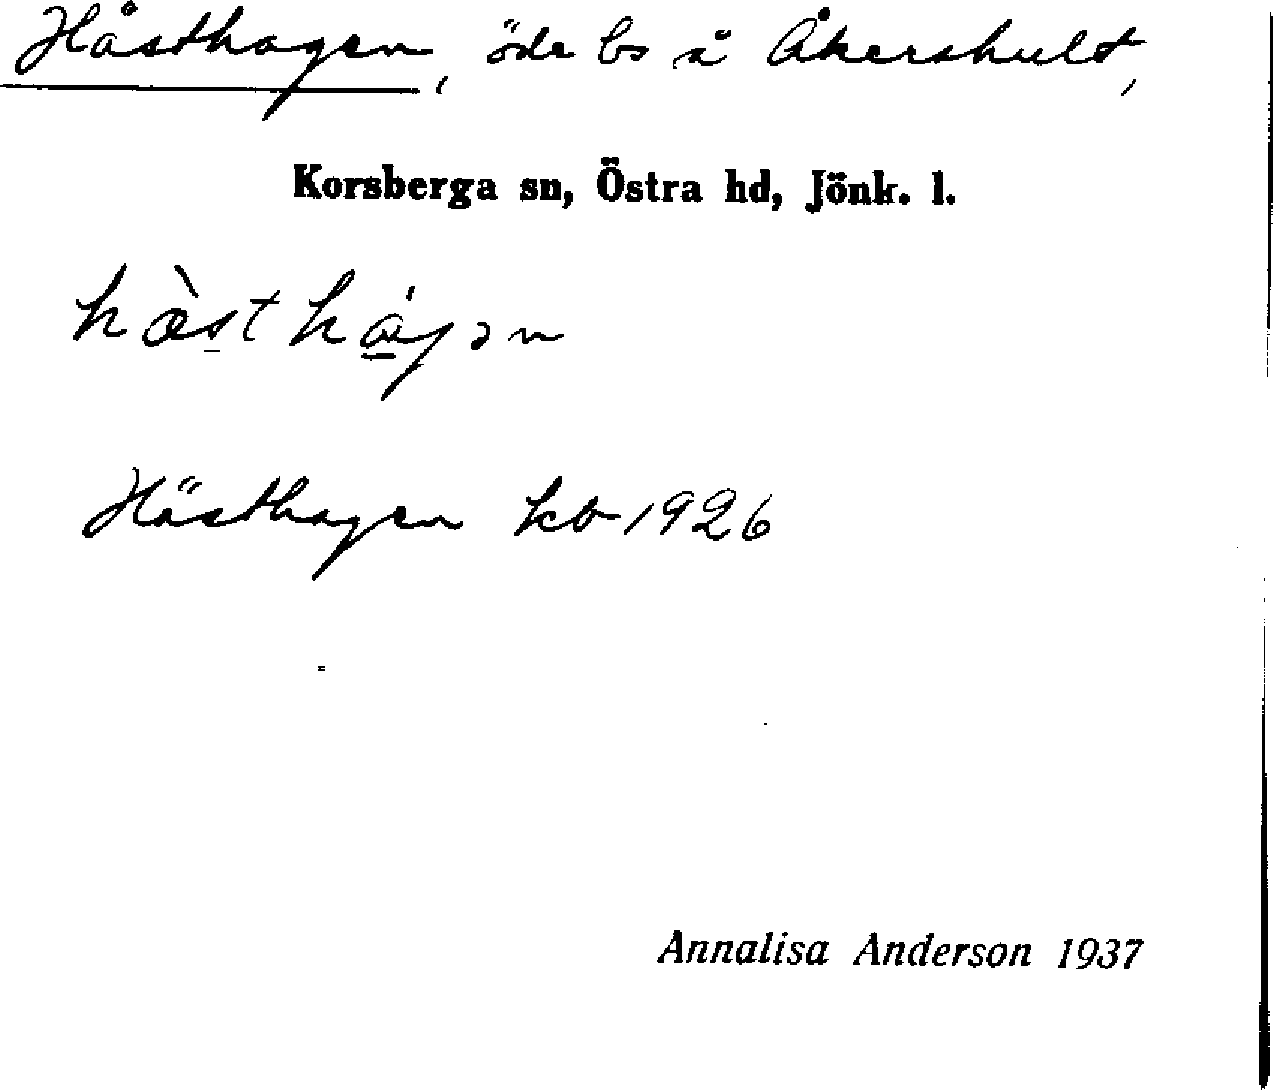 Hästhagen, öde bs å Åkershult,
Korsberga sn, Östra hd, Jönk. l.
hæ̀st há̱gən
Hästhagen kb 1926
Annalisa Anderson 1937